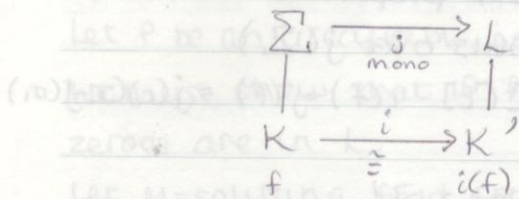 Σ j mono L
K i ≅ K'
f i(f)